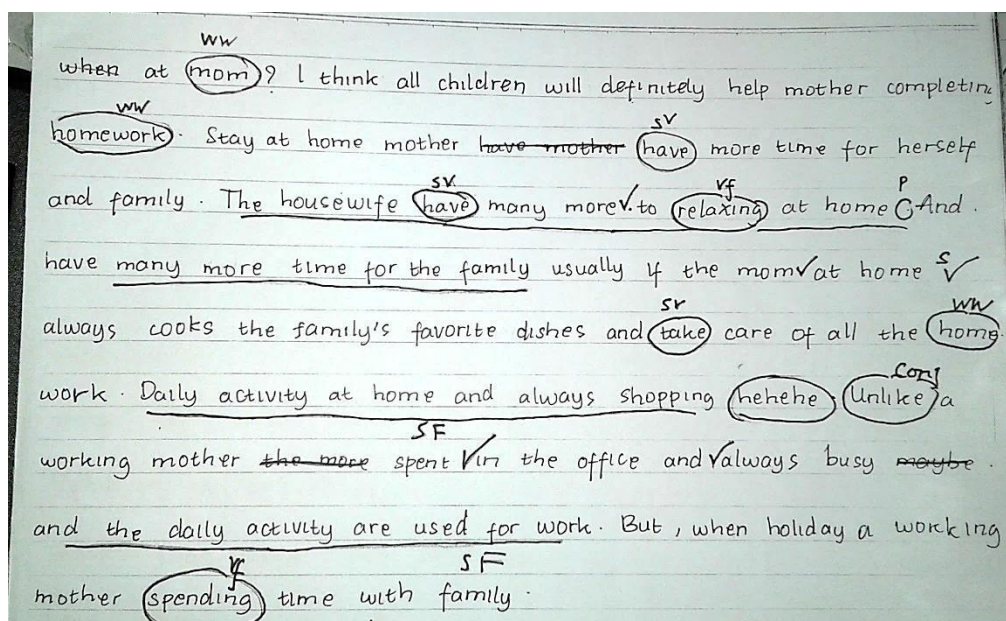 ww
when at mom? I think all children will definitely help mother completing
ww sv
homework. Stay at home mother have mother have more time for herself
sv. vf p
and family. The housewife have many more to relaxing at home And.
s
have many more time for the family usually if the mom at home
sv ww
always cooks the family's favorite dishes and take care of all the home
conj
work. Daily activity at home and always shopping hehehe Unlike a
SF
working mother the more spent in the office and always busy maybe.
and the daily activity are used for work. But, when holiday a working
vf SF
mother spending time with family.